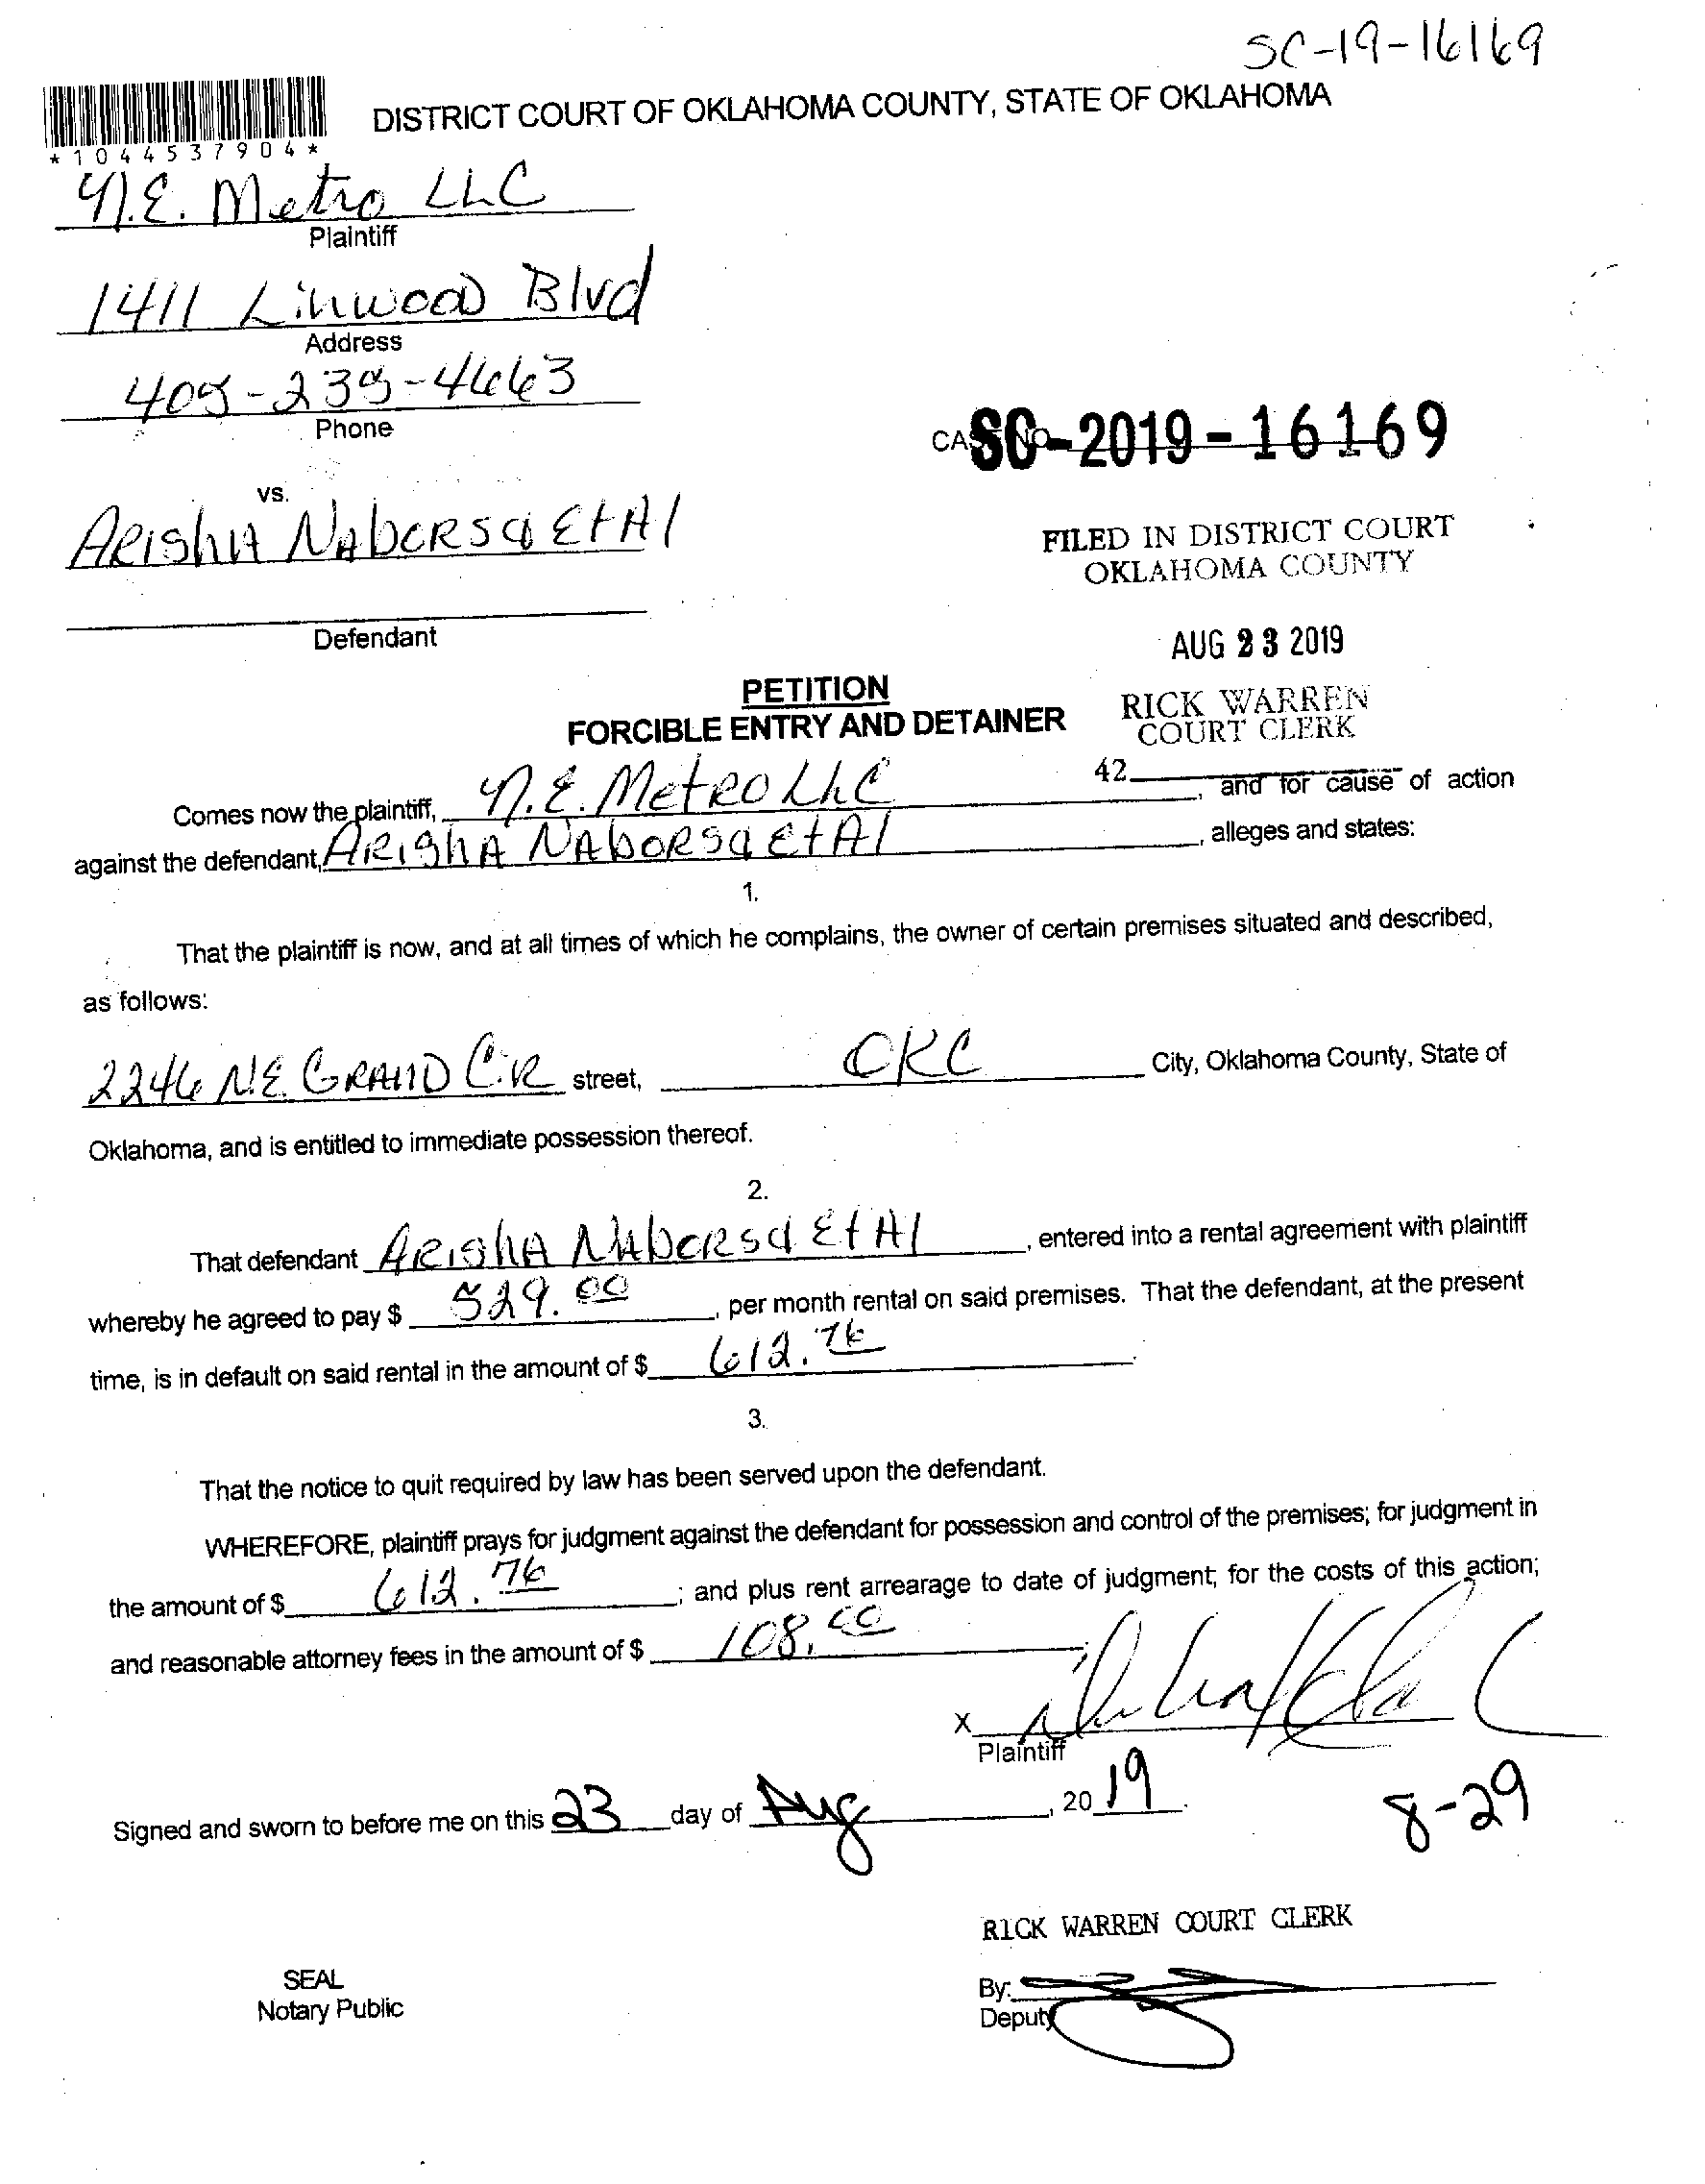 SC-19-16169
DISTRICT COURT OF OKLAHOMA COUNTY, STATE OF OKLAHOMA
*1044537904*
N.E. Metro LLC
Plaintiff
1411 Linwood Blvd
Address
405-235-4663
Phone
CASE NO. SC-2019-16169
vs.
ARishA NAbORS & Et Al
FILED IN DISTRICT COURT
OKLAHOMA COUNTY
Defendant
AUG 23 2019
PETITION
FORCIBLE ENTRY AND DETAINER
RICK WARREN
COURT CLERK
42
Comes now the plaintiff, N.E. MetRO LLC, and for cause of action
against the defendant, ARishA NAbORS & Et Al, alleges and states:
1.
That the plaintiff is now, and at all times of which he complains, the owner of certain premises situated and described,
as follows:
2246 N.E. GRAND CiR street, OKC City, Oklahoma County, State of
Oklahoma, and is entitled to immediate possession thereof.
2.
That defendant ARishA NAbORS & Et Al, entered into a rental agreement with plaintiff
whereby he agreed to pay $ 529.00, per month rental on said premises. That the defendant, at the present
time, is in default on said rental in the amount of $ 612.76.
3.
That the notice to quit required by law has been served upon the defendant.
WHEREFORE, plaintiff prays for judgment against the defendant for possession and control of the premises; for judgment in
the amount of $ 612.76; and plus rent arrearage to date of judgment; for the costs of this action;
and reasonable attorney fees in the amount of $ 108.00;
X
Plaintiff
Signed and sworn to before me on this 23 day of Aug, 2019.
8-29
RICK WARREN COURT CLERK
SEAL
Notary Public
By:
Deputy